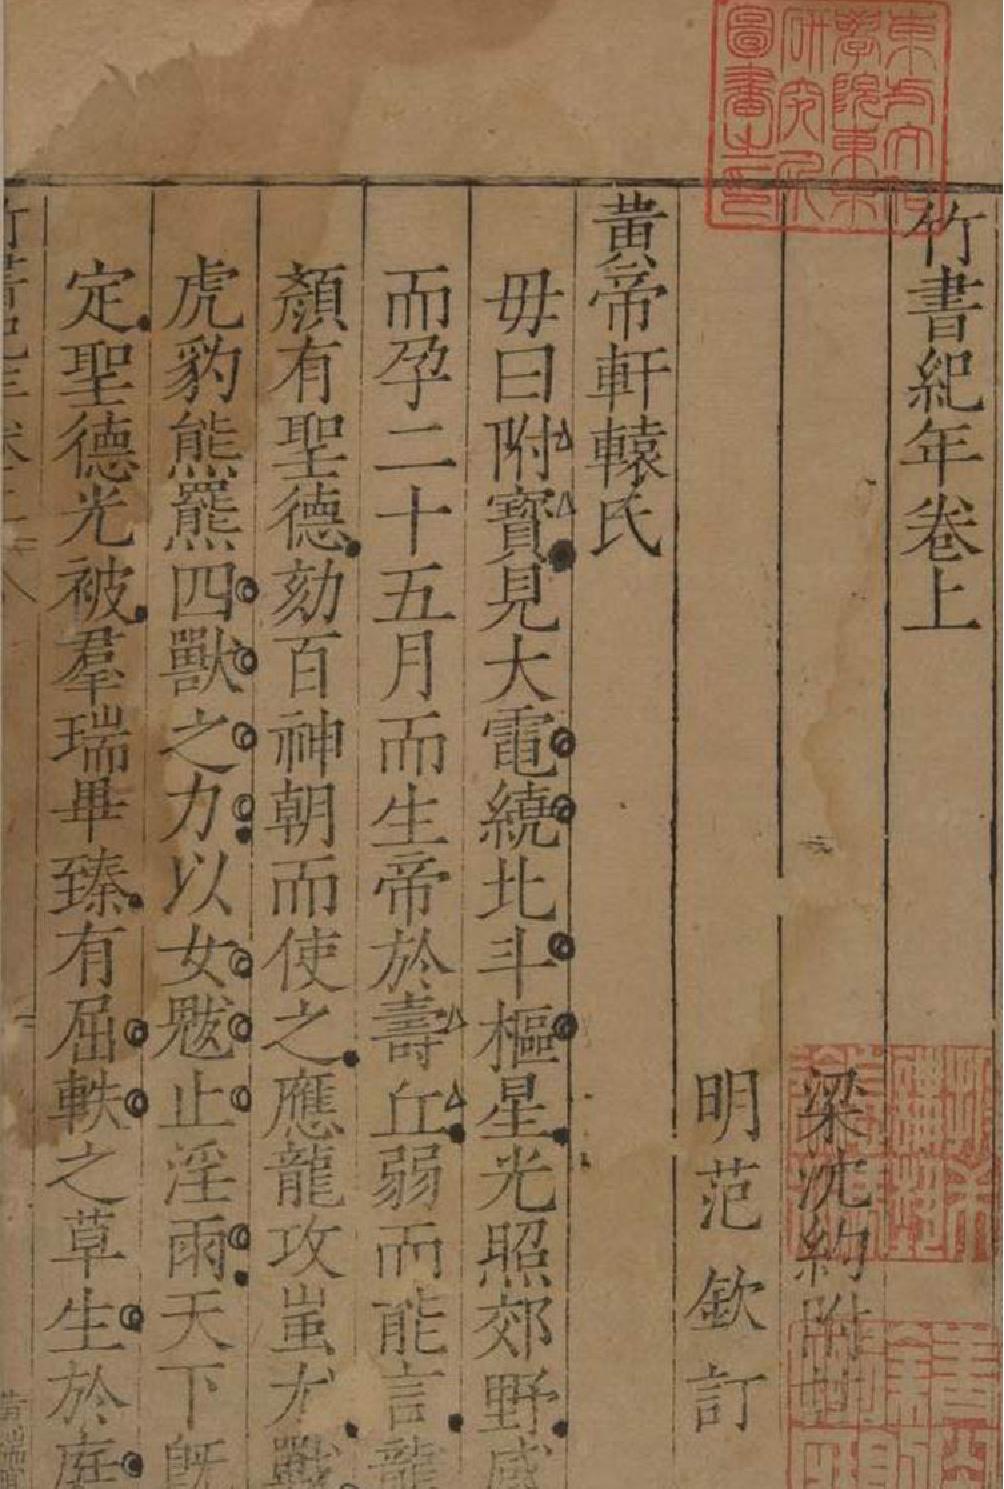 竹書紀年卷上
梁沈約附註
明范欽訂
黃帝軒轅氏
母曰附寶見大電繞北斗樞星光照郊野感
而孕二十五月而生帝於壽丘弱而能言龍
顏有聖德劾百神朝而使之應龍攻蚩尤戰
虎豹熊羆四獸之力以女魃止淫雨天下既
定聖德光被羣瑞畢臻有屈軼之草生於庭
竹書紀年卷上
東方文化學院東京研究所圖書之印